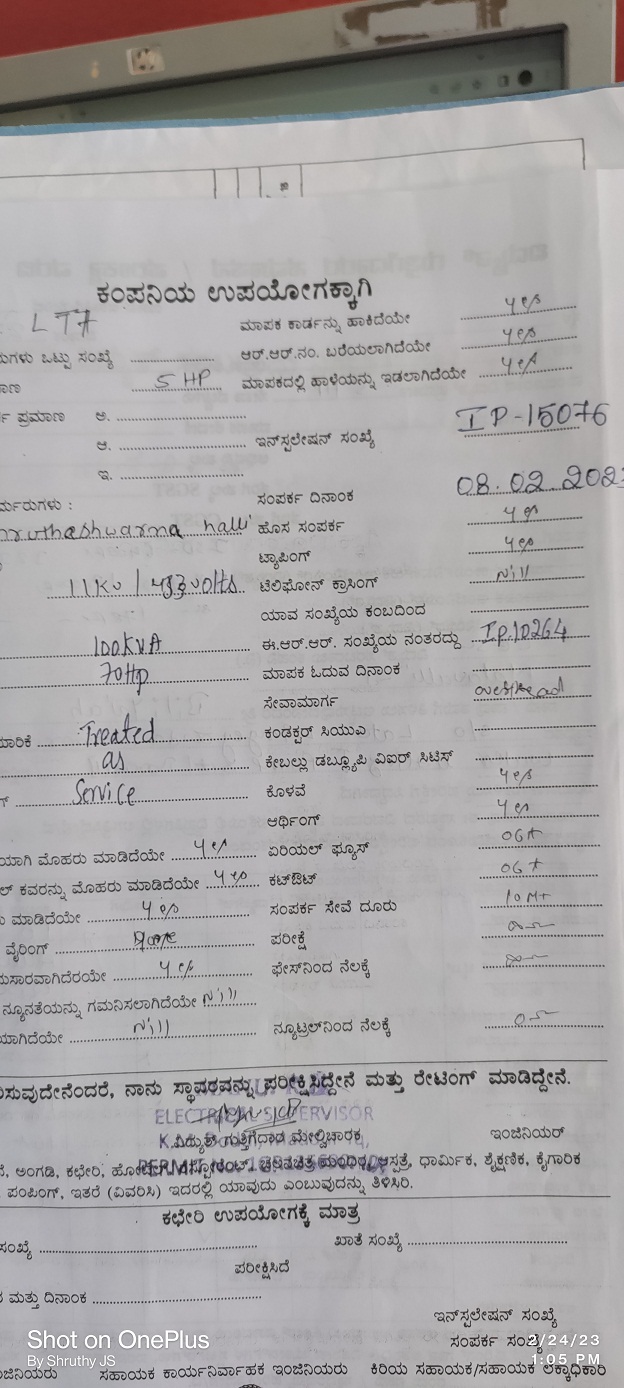 ಕಂಪನಿಯ ಉಪಯೋಗಕ್ಕಾಗಿ
LT7 ಮಾಪಕ ಕಾರ್ಡನ್ನು ಹಾಕಿದೆಯೇ yes
ಒಟ್ಟು ಸಂಖ್ಯೆ ಆರ್.ಆರ್.ನಂ. ಬರೆಯಲಾಗಿದೆಯೇ yes
5 HP ಮಾಪಕದಲ್ಲಿ ಹಾಳೆಯನ್ನು ಇಡಲಾಗಿದೆಯೇ yes
ಪ್ರಮಾಣ ಅ.
ಆ. ಇನ್‌ಸ್ಟಲೇಷನ್ ಸಂಖ್ಯೆ IP-15076
ಇ.
ಸಂಪರ್ಕ ದಿನಾಂಕ 08.02.202
halli ಹೊಸ ಸಂಪರ್ಕ yes
ಟ್ಯಾಪಿಂಗ್ yes
11KV / 433 volts ಟೆಲಿಫೋನ್ ಕ್ರಾಸಿಂಗ್ Nill
ಯಾವ ಸಂಖ್ಯೆಯ ಕಂಬದಿಂದ
100KVA ಈ.ಆರ್.ಆರ್. ಸಂಖ್ಯೆಯ ನಂತರದ್ದು IP.10264
70Hp ಮಾಪಕ ಓದುವ ದಿನಾಂಕ
ಸೇವಾಮಾರ್ಗ overhead
Treated ಕಂಡಕ್ಟರ್ ಸಿಯುವಿ
as ಕೇಬಲ್ಲು ಡಬ್ಲ್ಯೂಪಿ ವಿಐರ್ ಸಿಟಿಸ್
Service ಕೊಳವೆ yes
ಆರ್ಥಿಂಗ್ yes
ಮೊಹರು ಮಾಡಿದೆಯೇ yes ಏರಿಯಲ್ ಫ್ಯೂಸ್
ಕವರನ್ನು ಮೊಹರು ಮಾಡಿದೆಯೇ yes ಕಟ್‌ಔಟ್
ಮಾಡಿದೆಯೇ yes ಸಂಪರ್ಕ ಸೇವೆ ದೂರು 10 Mt
ವೈರಿಂಗ್ ಪರೀಕ್ಷೆ
yes ಫೇಸ್‌ನಿಂದ ನೆಲಕ್ಕೆ
ನ್ಯೂನತೆಯನ್ನು ಗಮನಿಸಲಾಗಿದೆಯೇ Nill
Nill ನ್ಯೂಟ್ರಲ್‌ನಿಂದ ನೆಲಕ್ಕೆ
ನಾನು ಸ್ಥಾವರವನ್ನು ಪರೀಕ್ಷಿಸಿದ್ದೇನೆ ಮತ್ತು ರೇಟಿಂಗ್ ಮಾಡಿದ್ದೇನೆ.
ELECTRICAL SUPERVISOR
ವಿದ್ಯುತ್ ಗುತ್ತಿಗೆದಾರ ಮೇಲ್ವಿಚಾರಕ ಇಂಜಿನಿಯರ್
ಅಂಗಡಿ, ಕಛೇರಿ, ಧಾರ್ಮಿಕ, ಶೈಕ್ಷಣಿಕ, ಕೈಗಾರಿಕ
ಪಂಪಿಂಗ್, ಇತರೆ (ವಿವರಿಸಿ) ಇದರಲ್ಲಿ ಯಾವುದು ಎಂಬುವುದನ್ನು ತಿಳಿಸಿರಿ.
ಕಛೇರಿ ಉಪಯೋಗಕ್ಕೆ ಮಾತ್ರ
ಸಂಖ್ಯೆ ಖಾತೆ ಸಂಖ್ಯೆ
ಪರೀಕ್ಷಿಸಿದೆ
ಮತ್ತು ದಿನಾಂಕ
ಇನ್‌ಸ್ಟಲೇಷನ್ ಸಂಖ್ಯೆ
ಸಂಪರ್ಕ
ಸಹಾಯಕ ಕಾರ್ಯನಿರ್ವಾಹಕ ಇಂಜಿನಿಯರು ಕಿರಿಯ ಸಹಾಯಕ/ಸಹಾಯಕ ಲೆಕ್ಕಾಧಿಕಾರಿ
Shot on OnePlus
By Shruthy JS
2/24/23
1:05 PM